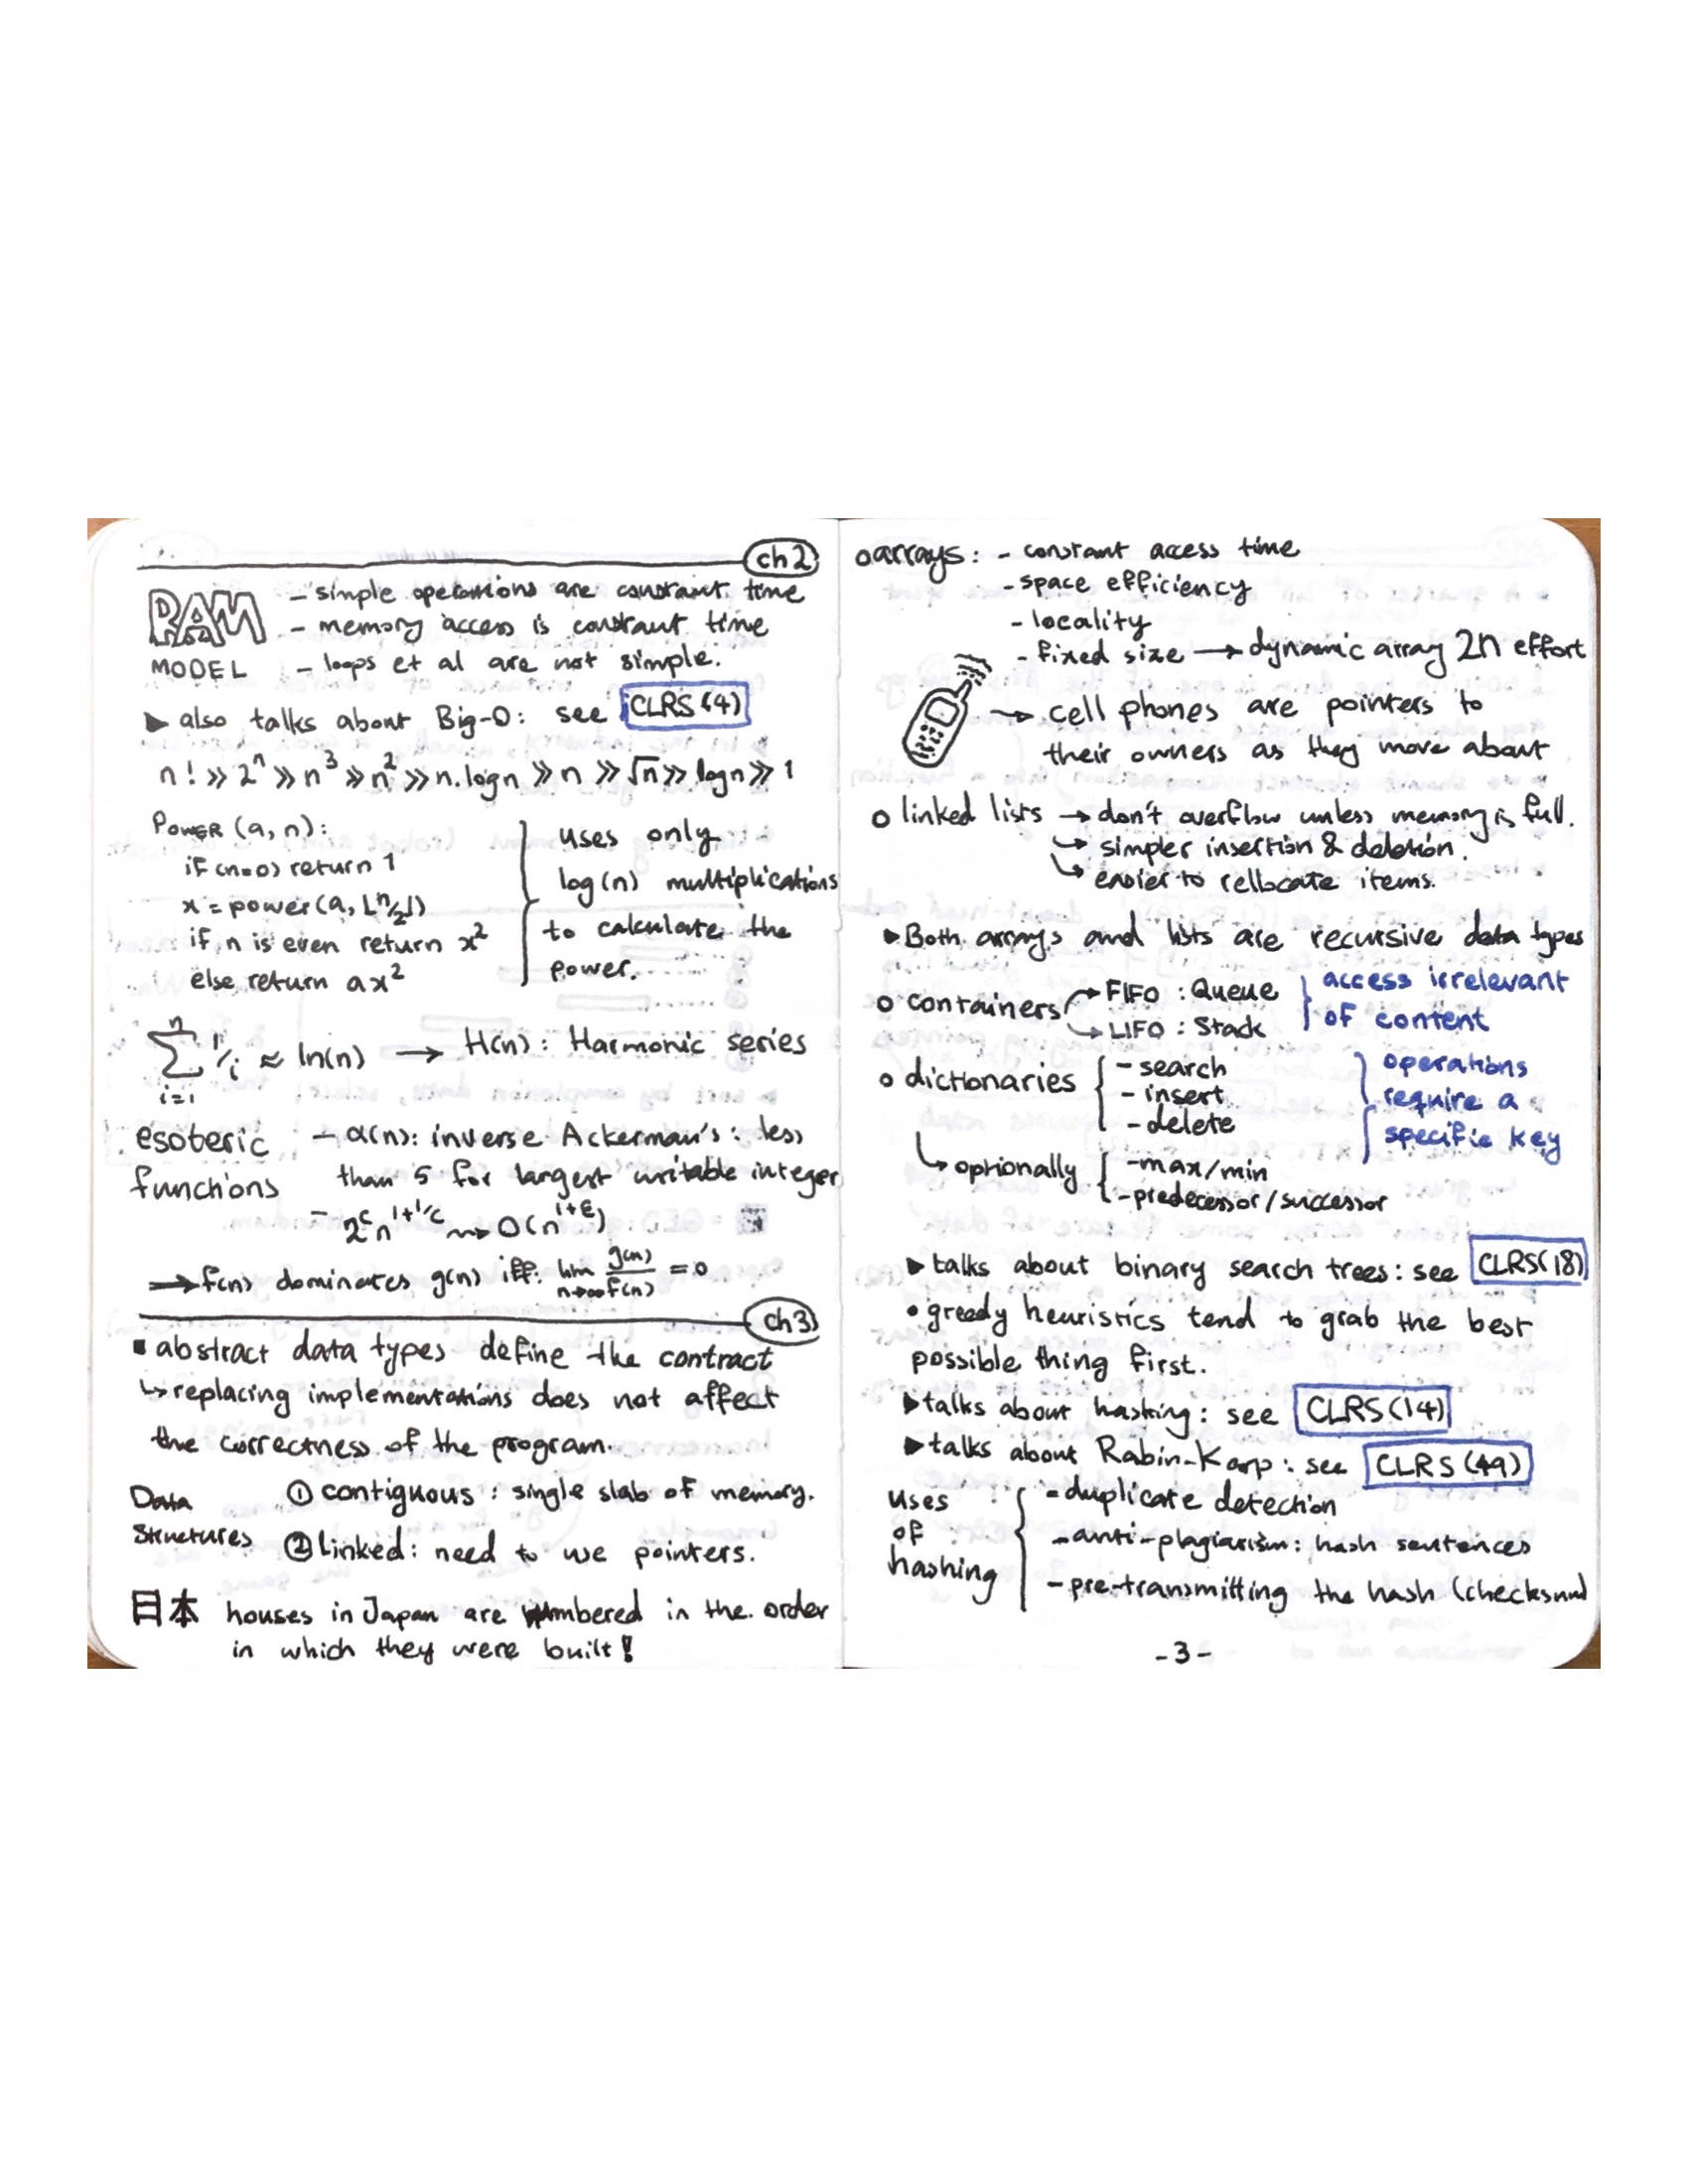 ch2
RAM MODEL
- simple operations are constant time
- memory access is constant time
- loops et al are not simple.
▶ also talks about Big-O: see CLRS(4)
n! >> 2^n >> n^3 >> n^2 >> n.logn >> n >> √n >> logn >> 1
POWER (a, n):
if (n=0) return 1
x = power(a, ⌊n/2⌋)
if n is even return x^2
else return ax^2
uses only
log(n) multiplications
to calculate the
power.
∑_{i=1}^{n} 1/i ≈ ln(n) → H(n): Harmonic series
esoteric functions
- α(n): inverse Ackerman's: less
than 5 for largest writable integer
- 2^c n^{1+1/c} ⇝ O(n^{1+ε})
⇒ f(n) dominates g(n) iff. lim_{n→∞} g(n)/f(n) = 0
ch3
▪ abstract data types define the contract
↳ replacing implementations does not affect
the correctness of the program.
Data Structures
① contiguous: single slab of memory.
② linked: need to use pointers.
日本 houses in Japan are numbered in the order
in which they were built!
o arrays: - constant access time
- space efficiency
- locality
- fixed size → dynamic array 2n effort
→ cell phones are pointers to
their owners as they move about
o linked lists → don't overflow unless memory is full.
↳ simpler insertion & deletion.
↳ easier to rellocate items.
▶ Both arrays and lists are recursive data types
o containers → FIFO : Queue
↳ LIFO : Stack
access irrelevant
of content
o dictionaries
- search
- insert
- delete
operations
require a
specific key
↳ optionally
- max/min
- predecessor/successor
▶ talks about binary search trees: see CLRS(18)
• greedy heuristics tend to grab the best
possible thing first.
▶ talks about hashing: see CLRS(14)
▶ talks about Rabin-Karp: see CLRS(49)
uses
of
hashing
- duplicate detection
- anti-plagiarism: hash sentences
- pre-transmitting the hash (checksum)
-3-